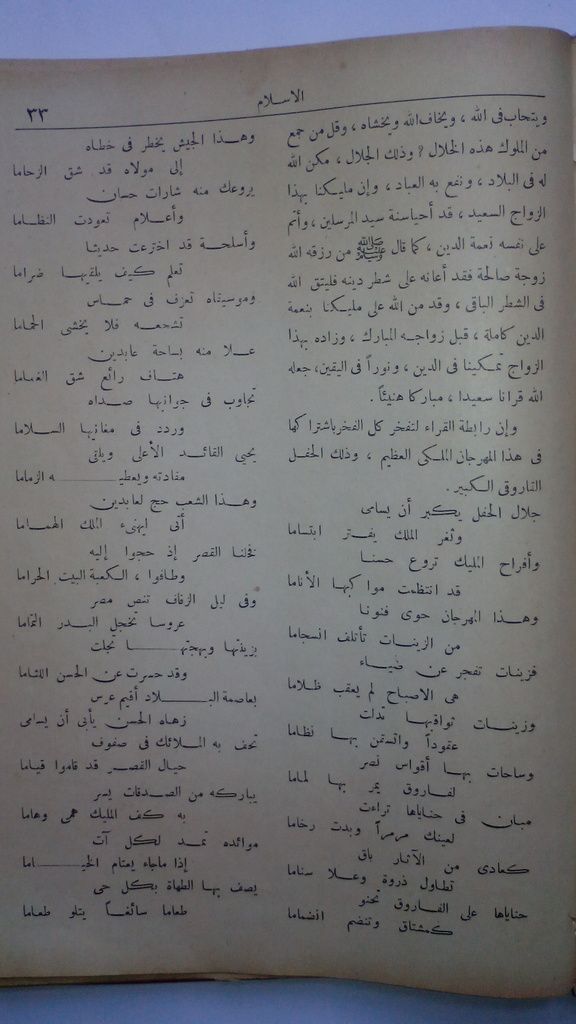 الاسلام
٣٣
ويتحاب فى الله ، ويخاف الله ويخشاه ، وقل من جمع
من الملوك هذه الخلال ؟ وذلك الجلال ، مكن الله
له فى البلاد ، ونفع به العباد ، وإن مليكنا بهذا
الزواج السعيد ، قد أحيا سنة سيد المرسلين ، وأتم
على نفسه نعمة الدين ، كما قال ﷺ من رزقه الله
زوجة صالحة فقد أعانه على شطر دينه فليتق الله
فى الشطر الباقى ، وقد من الله على مليكنا بنعمة
الدين كاملة ، قبل زواجه المبارك ، وزاده بهذا
الزواج تمكينا فى الدين ، ونوراً فى اليقين ، جعله
الله قرانا سعيدا ، مباركا هنيئاً .
وإن رابطة القراء لتفخر كل الفخر باشتراكها
فى هذا المهرجان الملكى العظيم ، وذلك الحفل
الفاروقى الكبير .
جلال الحفل يكبر أن يسامى
وثغر الملك يفتر ابتساما
وأفراح المليك تروع حسنا
قد انتظمت مواكبها الأناما
وهذا المهرجان حوى فنونا
من الزينات تأتلف انسجاما
فزينات تفجر عن ضياء
هى الاصباح لم يعقب ظلاما
وزينات نواقيها تدلت
عقوداً واتسقن بها نظاما
وساحات بها أقواس نصر
لفاروق يمر بها لماما
مبان فى حناياها تراءت
لعينك مرمراً وبدت رخاما
كعادى من الآثار باق
تطاول ذروة وعلا سناما
حناياها على الفاروق تحنو
كمشتاق وتنضم انضماما
وهذا الجيش يخطر فى خطاه
إلى مولاه قد شق الزحاما
يروعك منه شارات حسان
وأعلام تعودت النظاما
وأسلحة قد اخترعت حديثا
تعلم كيف يلقيها ضراما
وموسيقاه تعزف فى حماس
تشجعه فلا يخشى الحماما
علا منه بساحة عابدين
هتاف رائع شق الغماما
تجاوب فى جوانبها صداه
وردد فى مغانيها السلاما
يحيى القائد الأعلى ويلقى
مقادته ويعطيه الزماما
وهذا الشعب حج لعابدين
أتى ليهنىء الملك الهماما
فخلنا القصر إذ حجوا إليه
وطافوا ، الكعبة البيت الحراما
وفى ليل الزفاف تنص مصر
عروسا تخجل البدر التماما
بزينتها وبهجتها تجلت
وقد حسرت عن الحسن اللثاما
بعاصمة البلاد أقيم عرس
زهاه الحسن يأبى أن يسامى
تحف به الملائك فى صفوف
حيال القصر قد قاموا قياما
يباركه من الصدقات يسر
به كف المليك همى وهاما
موائده تمد لكل آت
إذا ماجاء يعتام الخياما
يصف بها الطهاة بكل حى
طعاما سائغاً يتلو طعاما